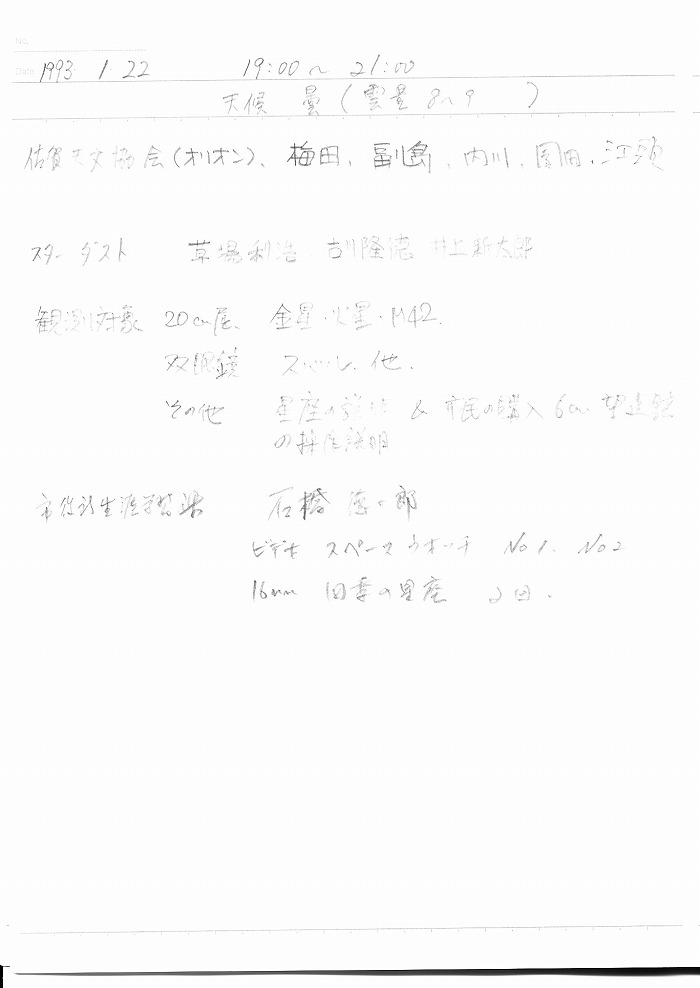 No.
Date 1993 1 22 19:00～21:00
天候 曇（雲量8～9 ）
佐賀天文協会（オリオン）、梅田、副島、内川、園田、江頭
スターダスト 草場利浩 古川隆徳 井上新太郎
観測対象 20cm屈、金星・火星・M42.
双眼鏡 スバル、他.
その他 星座の説明 & 市民の購入6cm望遠鏡
の操作説明
市役所生涯学習課 石橋 郎
ビデオ スペースウオッチ No1. No2
16mm 四季の星座 2回.